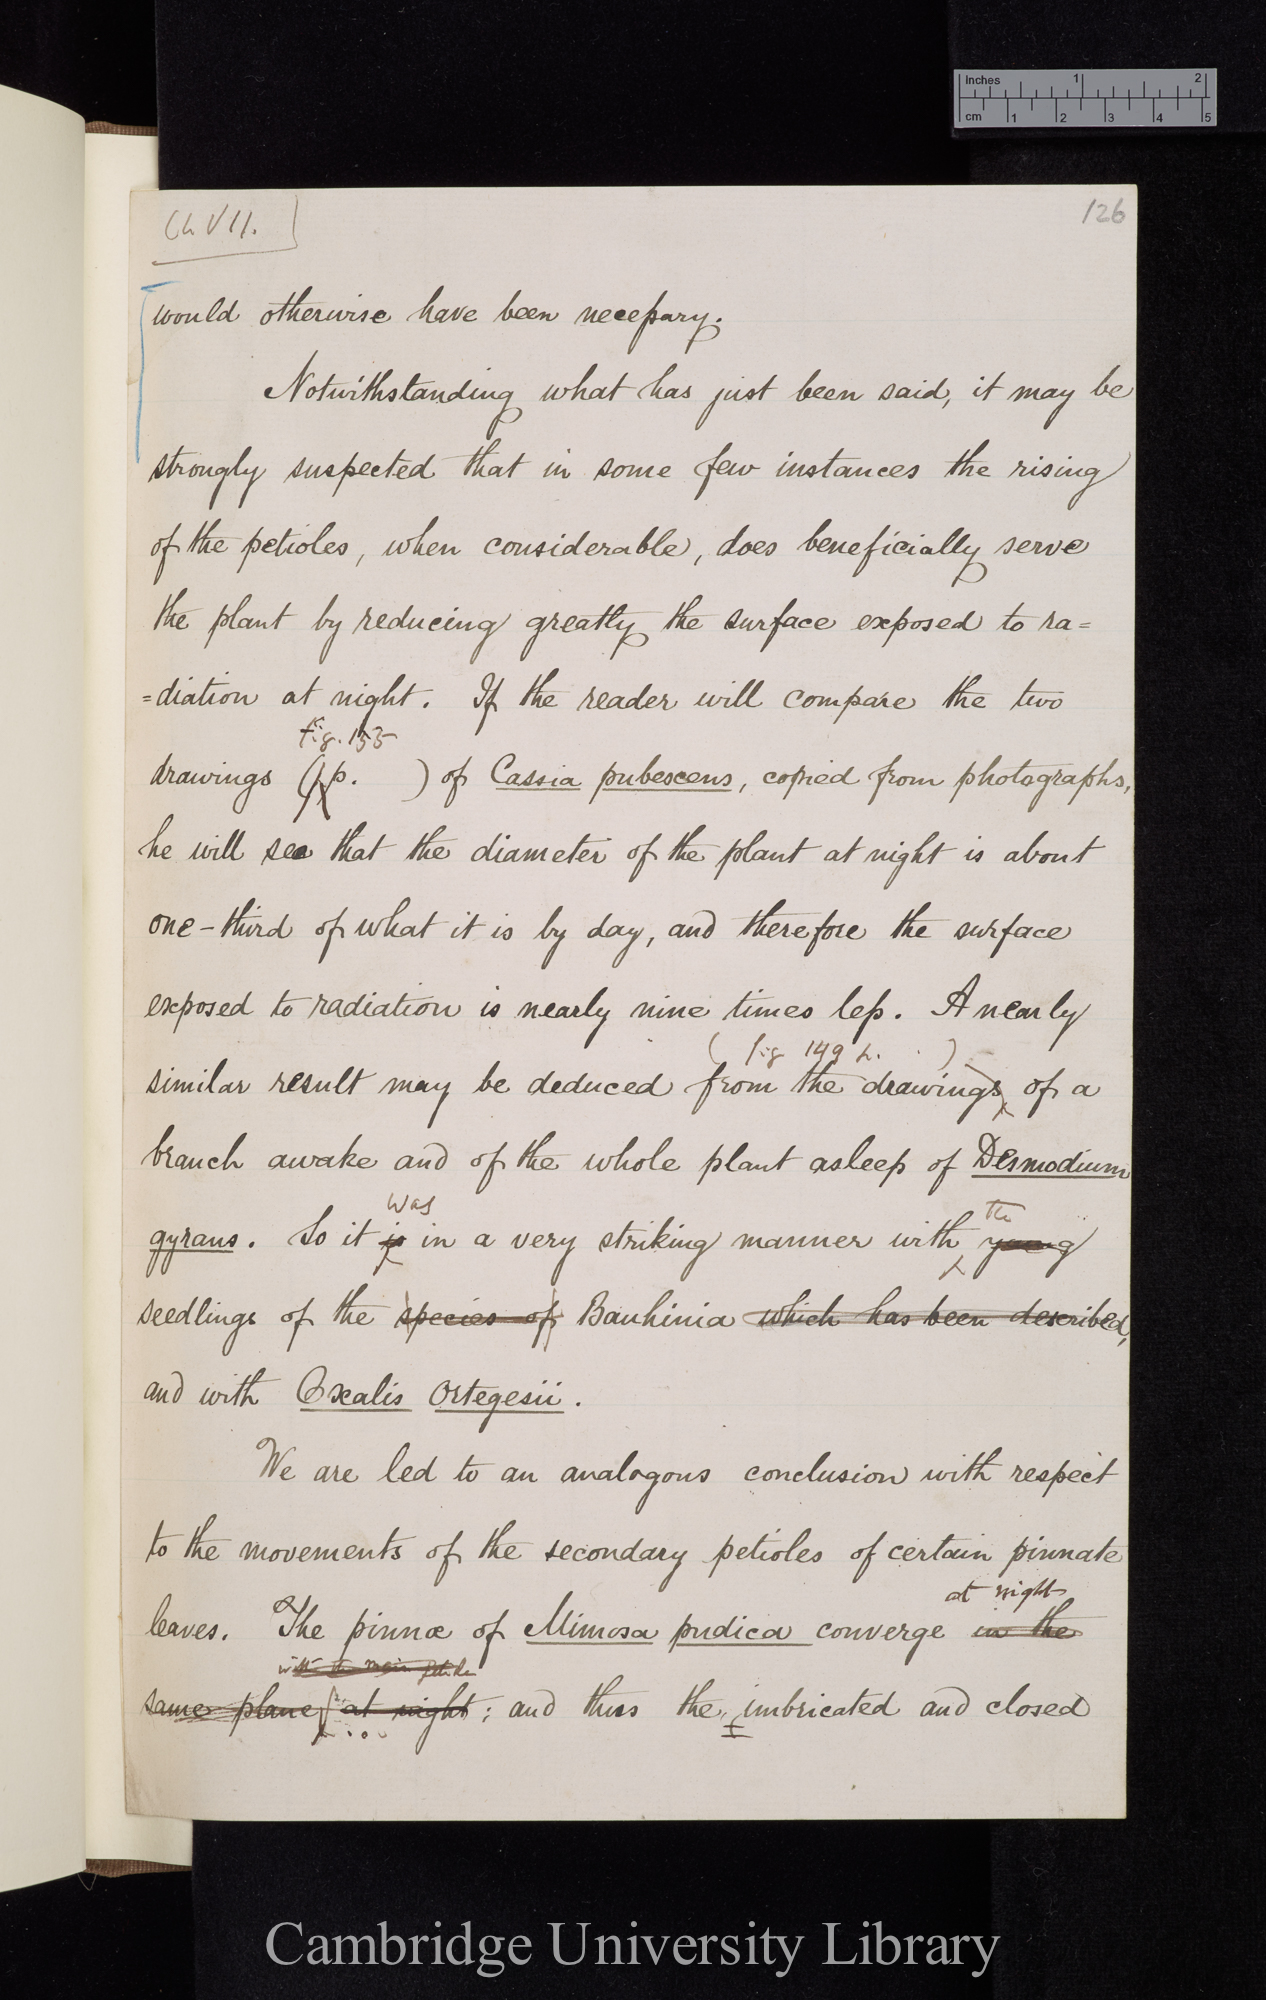 Inches 1 2
cm 1 2 3 4 5
Ch VII.
126
would otherwise have been necessary.
Notwithstanding what has just been said, it may be
strongly suspected that in some few instances the rising
of the petioles, when considerable, does beneficially serve
the plant by reducing greatly the surface exposed to ra=
=diation at night. If the reader will compare the two
Fig. 155
drawings (p. ) of Cassia pubescens, copied from photographs,
he will see that the diameter of the plant at night is about
one-third of what it is by day, and therefore the surface
exposed to radiation is nearly nine times less. A nearly
( fig 149 p. )
similar result may be deduced from the drawings of a
branch awake and of the whole plant asleep of Desmodium
was the
gyrans. So it is in a very striking manner with young
seedlings of the species of Bauhinia which has been described,
and with Oxalis Ortegesii.
We are led to an analogous conclusion with respect
to the movements of the secondary petioles of certain pinnate
at night
leaves. The pinnæ of Mimosa pudica converge in the
with the main petiole
same plane at night; and thus the imbricated and closed
Cambridge University Library